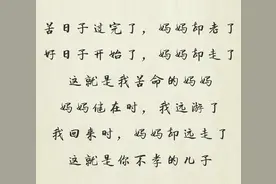 苦日子过完了，妈妈却老了
好日子开始了，妈妈却走了
这就是我苦命的妈妈
妈妈健在时，我远游了
我回来时，妈妈却远走了
这就是你不孝的儿子